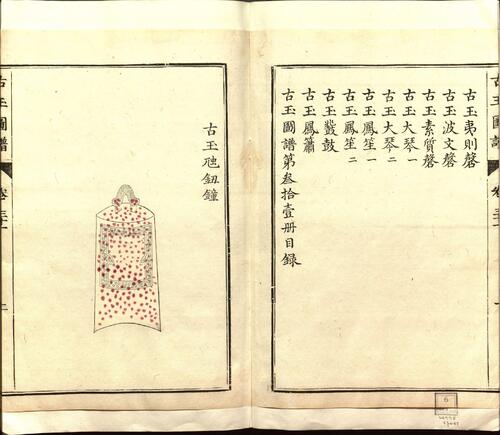 古玉圖譜
古玉夷則磬
古玉波文磬
古玉素質磬
古玉大琴一
古玉大琴二
古玉鳳笙一
古玉鳳笙二
古玉鼗鼓
古玉鳳簫
古玉圖譜第叁拾壹册目録
古玉虺鈕鐘
古玉圖譜
卷三十一
6